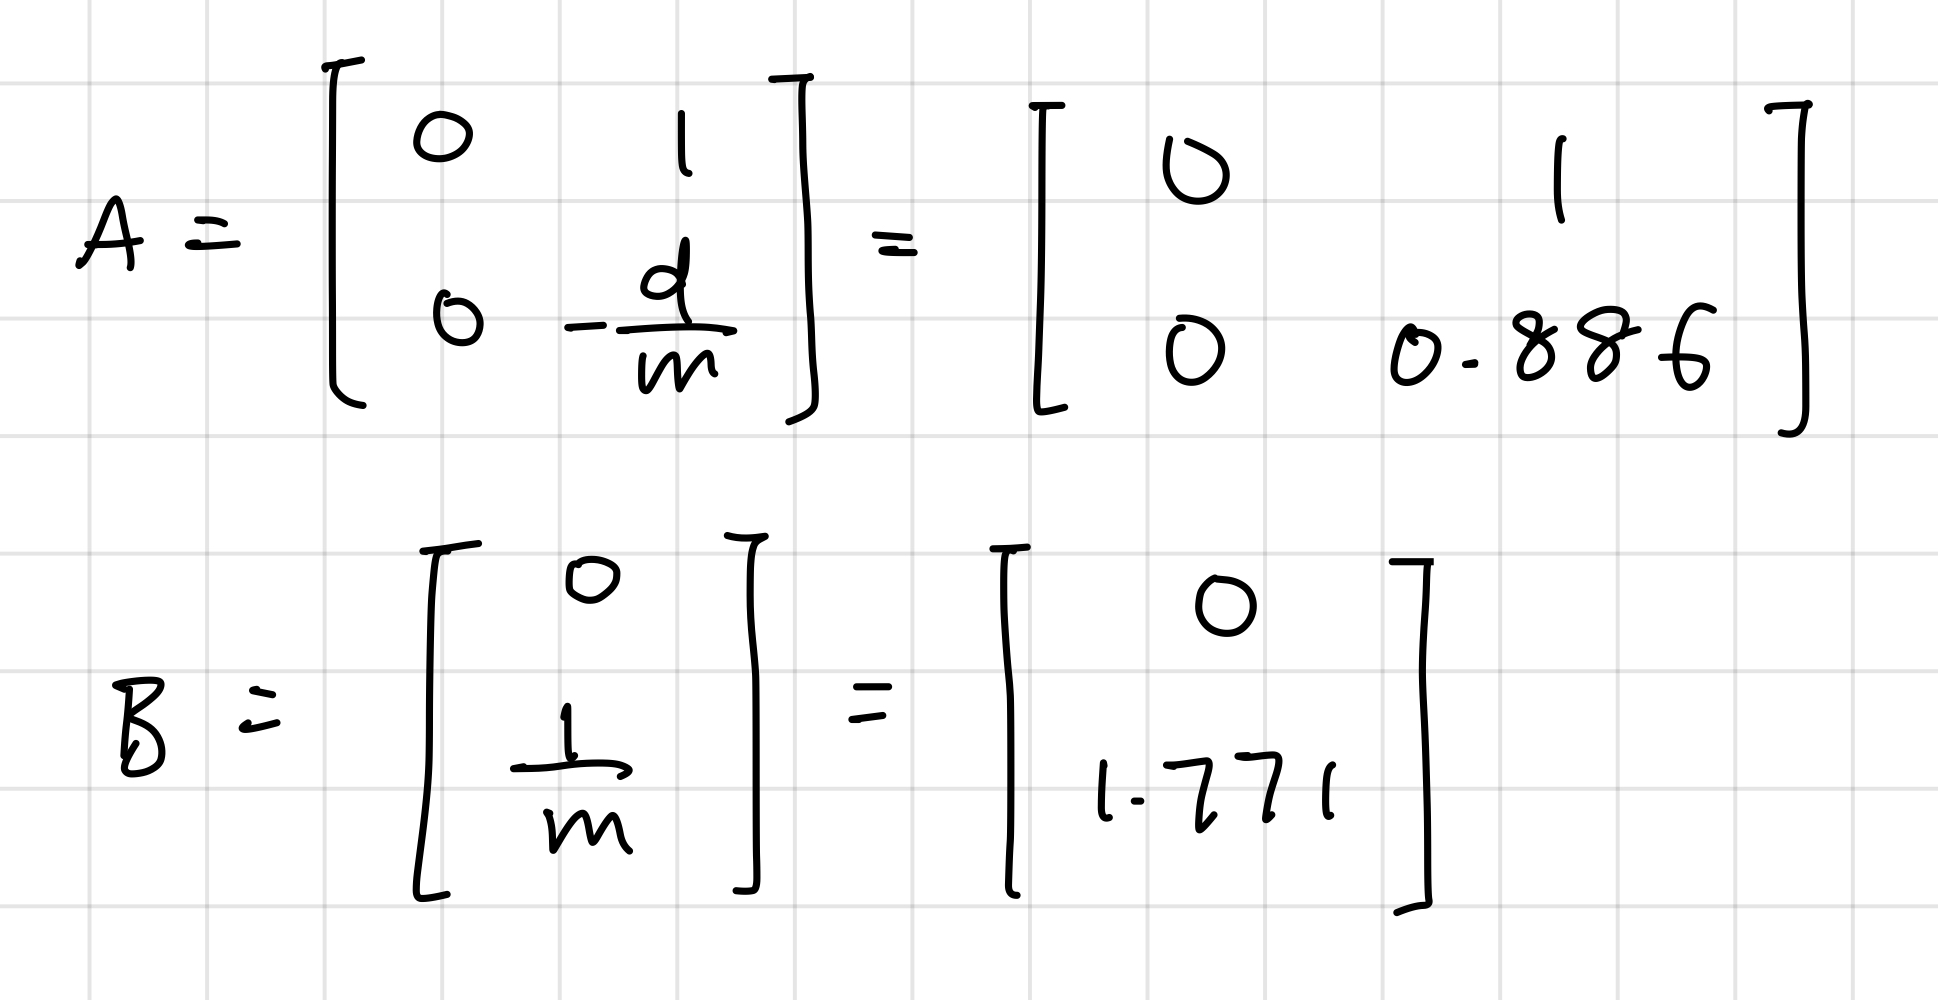 A = [ 0 1 ; 0 -d/m ] = [ 0 1 ; 0 0.886 ]
B = [ 0 ; 1/m ] = [ 0 ; 1.771 ]